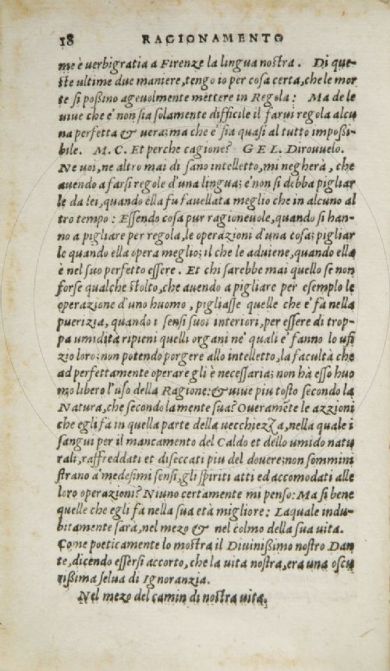 18 RAGIONAMENTO
me è verbigratia a Firenze la lingua nostra. Di que
ste ultime due maniere, tengo io per cosa certa, che le mor
te si poßino ageuolmente mettere in Regola: Ma de le
viue che è non sia solamente difficile il farui regola alcu
na perfetta & vera: ma che è sia quasi al tutto impoßi-
bile. M. C. Et perche cagione? GEL. Dirouelo.
Ne voi, ne altro mai di sano intelletto, mi negherà, che
auendo a farsi regole d'una lingua; è non si debba pigliar
le da lei, quando ella fu fauellata meglio che in alcuno al
tro tempo: Essendo cosa pur ragioneuole, quando si han-
no a pigliare per regola, le operazioni d'una cosa; pigliar
le quando ella opera meglio; il che le aduiene, quando ella
è nel suo perfetto essere. Et chi sarebbe mai quello se non
forse qualche stolto, che auendo a pigliare per esemplo le
operazione d'uno huomo, pigliasse quelle che e' fà nella
puerizia, quando i sensi suoi interiori, per essere di trop-
pa umidità ripieni quelli organi ne' quali e' fanno lo ufi
zio loro; non potendo porgere allo intelletto, la facultà che
ad perfettamente operare gli è necessaria; non hà esso huo
mo libero l'uso della Ragione: & viue piu tosto secondo la
Natura, che secondo la mente sua? Oueramēte le azzioni
che egli fà in quella parte della vecchiezza, nella quale i
sangui per il mancamento del Caldo et dello umido natu
rali, raffreddati et diseccati piu del douere; non sommini
strano a' medesimi sensi, gli spiriti atti ed accomodati alle
loro operazioni? Niuno certamente mi penso: Ma si bene
quelle che egli fà nella sua età migliore: Laquale indu-
bitamente sarà, nel mezo & nel colmo della sua vita.
Come poeticamente lo mostra il Diuinißimo nostro Dan
te, dicendo essersi accorto, che la vita nostra, era una oscu
rißima selua di Ignoranzia.
Nel mezo del camin di nostra vita,